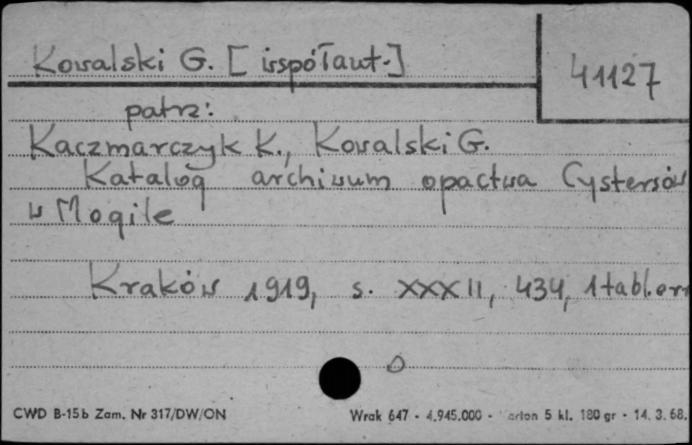 Kowalski G. [współaut.]
41127
patrz:
Kaczmarczyk K., Kowalski G.
Katalog archiwum opactwa Cystersów
w Mogile
Kraków 1919, s. XXXII, 434, 1 tabl.
CWD B-15b Zam. Nr 317/DW/ON
Wrak 647 - 4.945.000 - 5 kl. 180 gr - 14. 3. 68.